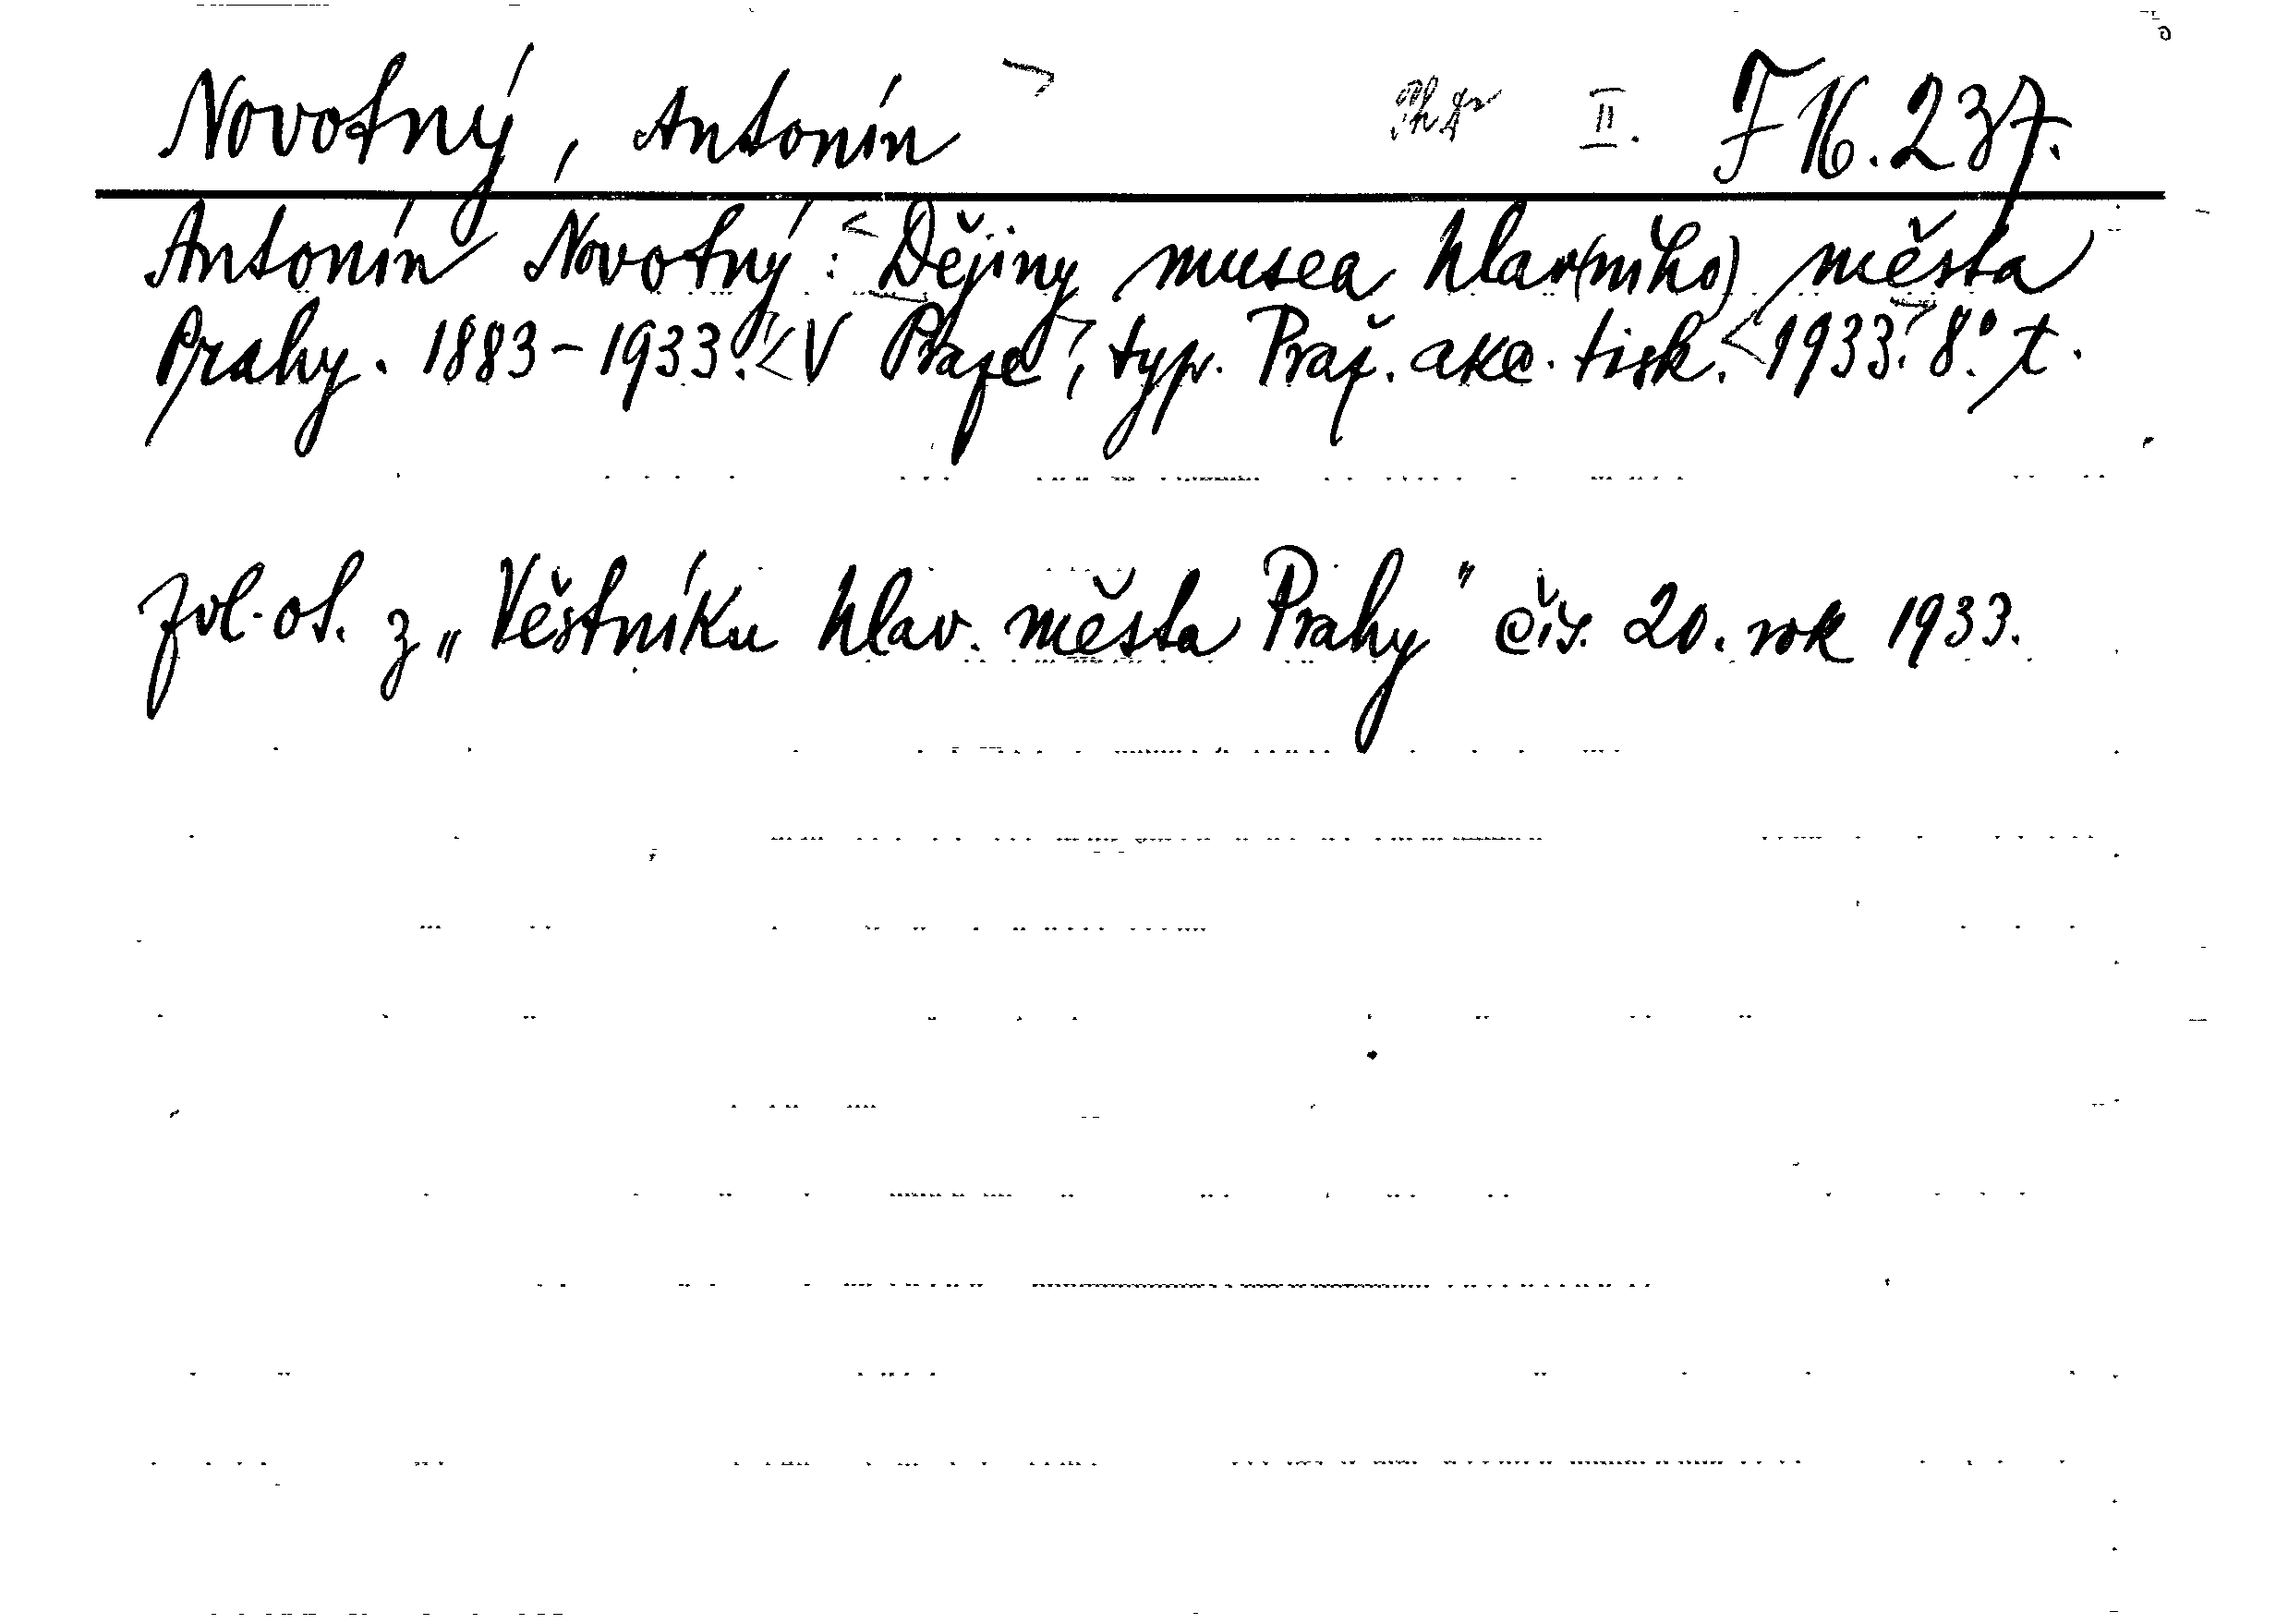 Novotný, Antonín II. F 16.237.
Antonín Novotný: Dějiny musea hlav(ního) města
Prahy. 1883-1933. V Praze, typ. Praž. akc. tisk. 1933. 8°. t.
Zvl. ot. z „Věstníku hlav. města Prahy" čís. 20. rok 1933.